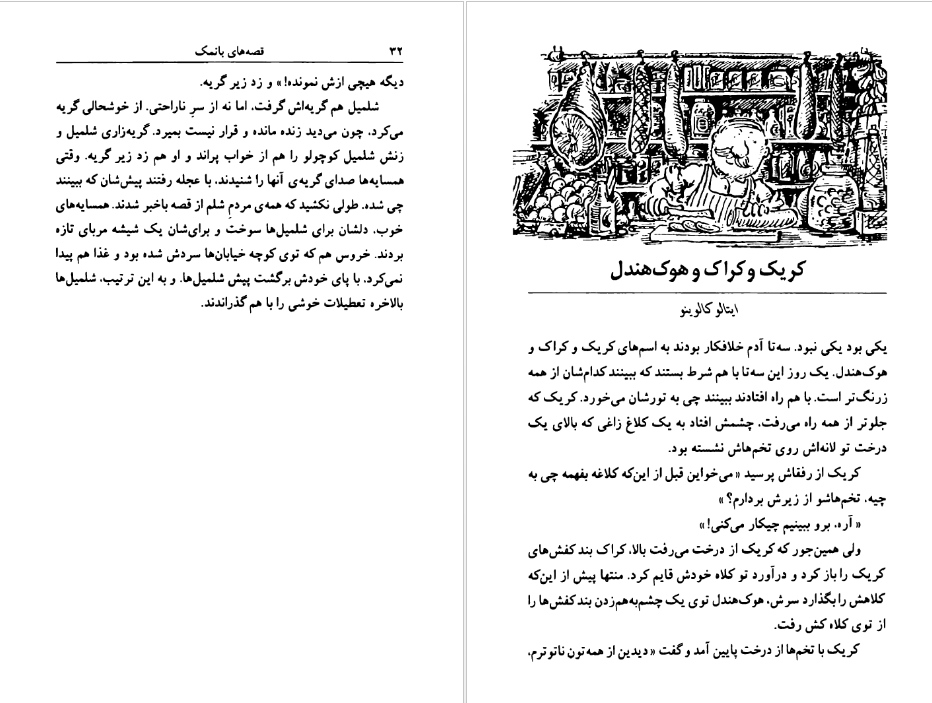 ۳۲
قصه‌های بانمک
دیگه هیچی ازش نمونده!» و زد زیر گریه.
شلمیل هم گریه‌اش گرفت، اما نه از سرِ ناراحتی. از خوشحالی گریه
می‌کرد، چون می‌دید زنده مانده و قرار نیست بمیرد. گریه‌زاری شلمیل و
زنش شلمیل کوچولو را هم از خواب پراند و او هم زد زیر گریه. وقتی
همسایه‌ها صدای گریه‌ی آنها را شنیدند، با عجله رفتند پیش‌شان که ببینند
چی شده. طولی نکشید که همه‌ی مردم شلم از قصه باخبر شدند. همسایه‌های
خوب، دلشان برای شلمیل‌ها سوخت و برای‌شان یک شیشه مربای تازه
بردند. خروس هم که توی کوچه خیابان‌ها سردش شده بود و غذا هم پیدا
نمی‌کرد، با پای خودش برگشت پیش شلمیل‌ها. و به این ترتیب، شلمیل‌ها
بالاخره تعطیلات خوشی را با هم گذراندند.
کریک و کراک و هوک‌هندل
ایتالو کالوینو
یکی بود یکی نبود. سه‌تا آدم خلافکار بودند به اسم‌های کریک و کراک و
هوک‌هندل. یک روز این سه‌تا با هم شرط بستند که ببینند کدام‌شان از همه
زرنگ‌تر است. با هم راه افتادند ببینند چی به تورشان می‌خورد. کریک که
جلوتر از همه راه می‌رفت، چشمش افتاد به یک کلاغ زاغی که بالای یک
درخت تو لانه‌اش روی تخم‌هاش نشسته بود.
کریک از رفقاش پرسید « می‌خواین قبل از این‌که کلاغه بفهمه چی به
چیه، تخم‌هاشو از زیرش بردارم؟ »
« آره، برو ببینیم چیکار می‌کنی! »
ولی همین‌جور که کریک از درخت می‌رفت بالا، کراک بند کفش‌های
کریک را باز کرد و درآورد تو کلاه خودش قایم کرد. منتها پیش از این‌که
کلاهش را بگذارد سرش، هوک‌هندل توی یک چشم‌به‌هم‌زدن بند کفش‌ها را
از توی کلاه کش رفت.
کریک با تخم‌ها از درخت پایین آمد و گفت « دیدین از همه‌تون ناتوترم،